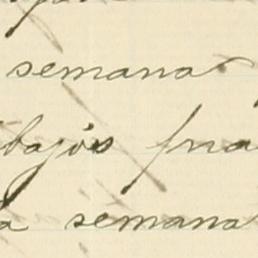 semana
bajos fria
a semana